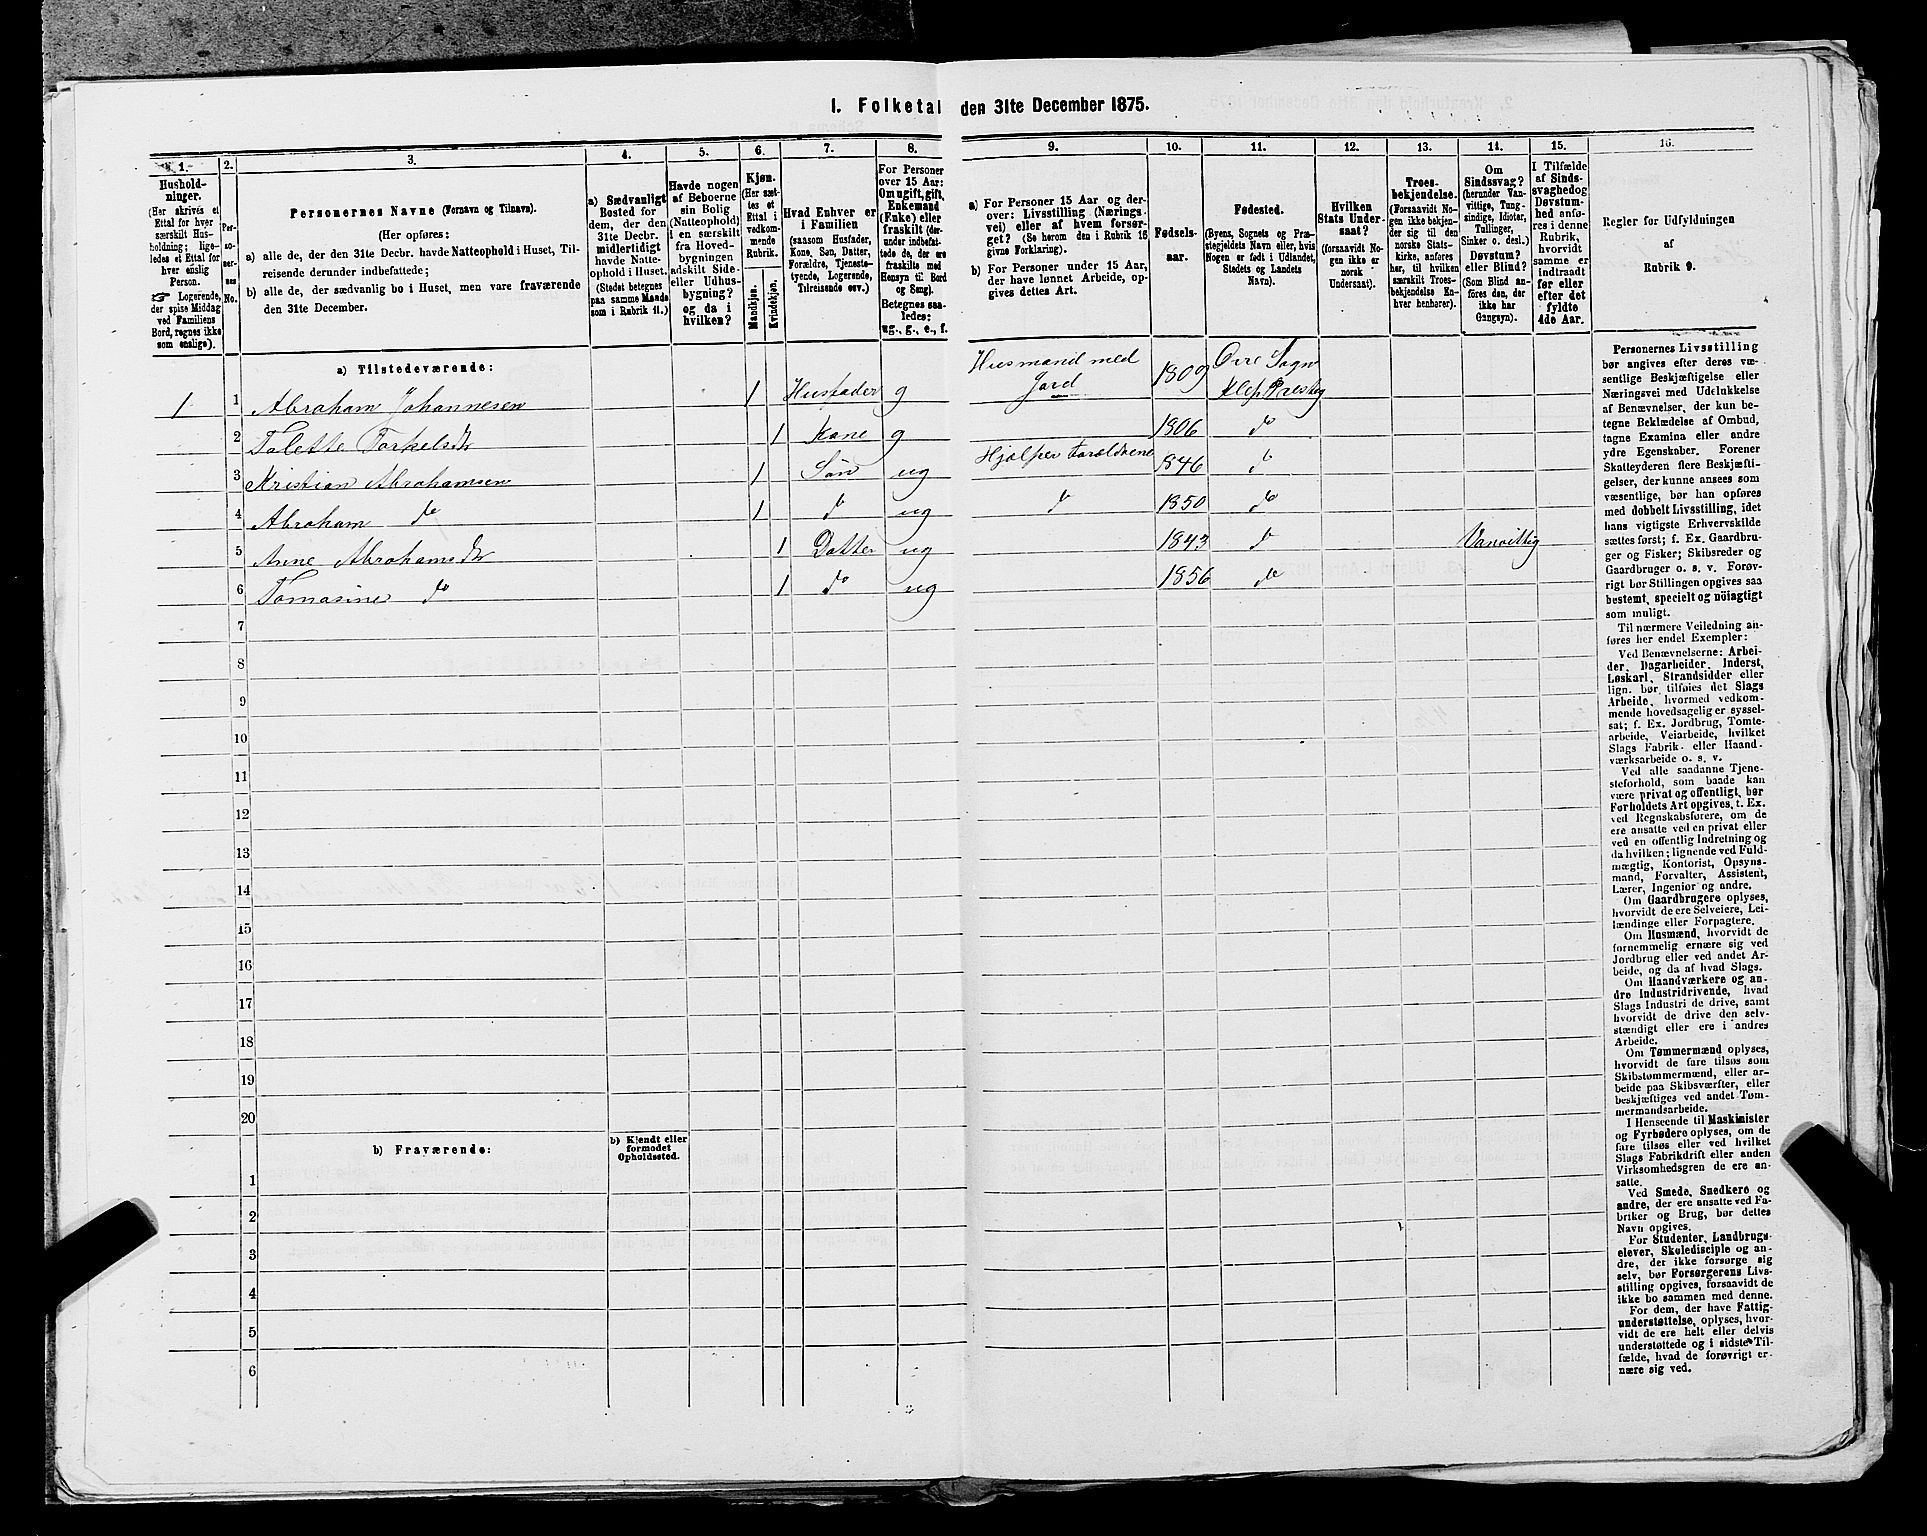 1. Folketal den 31te December 1875.
1. 2. 3. 4. 5. 6. 7. 8. 9. 10. 11. 12. 13. 14. 15. 16.
Hushold-
ninger.
(Her skrives et
Ettal for hver
særskilt Hus-
holdning; lige-
ledes et Ettal for
hver enslig
Person.
☞ Logerende,
der spise Middag
ved Familiens
Bord, regnes ikke
som enslige).
Per-
so-
ner-
nes
No.
Personernes Navne (Fornavn og Tilnavn).
(Her opføres:
a) alle de, der den 31te Decbr. havde Natteophold i Huset, Til-
reisende derunder indbefattede;
b) alle de, der sædvanlig bo i Huset, men vare fraværende
den 31te December.
a) Sædvanligt
Bosted for
dem, der den
31te Decbr.
midlertidigt
havde Natte-
ophold i Huset.
(Stedet betegnes
paa samme Maade
som i Rubrik 11.)
Havde nogen
af Beboerne
sin Bolig
(Natteophold)
i en særskilt
fra Hoved-
bygningen
adskilt Side-
eller Udhus-
bygning?
og da i
hvilken?
Kjøn.
(Her sæt-
tes et
Ettal i
vedkom-
mende
Rubrik.
Mandkjøn.
Kvindekjøn.
Hvad Enhver er
i Familien
(saasom Husfader,
Kone, Søn, Datter,
Forældre, Tjeneste-
tyende, Logerende,
Tilreisende osv.)
For Personer
over 15 Aar:
Om ugift, gift,
Enkemand
(Enke) eller
fraskilt (der-
under indbefat-
tede de, der ere
fraskilte med
Hensyn til Bord
og Seng).
Betegnes saa-
ledes:
ug., g., e., f.
a) For Personer 15 Aar og der-
over: Livsstilling (Nærings-
vei) eller af hvem forsør-
get? (Se herom den i Rubrik 16
givne Forklaring).
b) For Personer under 15 Aar,
der have lønnet Arbeide, op-
gives dettes Art.
Fødsels-
aar.
Fødested.
(Byens, Sognets og Præ-
stegjeldets Navn eller, hvis
Nogen er født i Udlandet,
Stedets og Landets
Navn).
Hvilken
Stats Under-
saat?
(forsaavidt No-
gen ikke er
norsk
Undersaat).
Troes-
bekjendelse.
(Forsaavidt No-
gen ikke bekjen-
der sig til den
norske Stats-
kirke, anføres
her, til hvilken
særskilt Troes-
bekjendelse En-
hver henhører).
Om
Sindssvag?
(herunder Van-
vittige, Tung-
sindige, Idioter,
Tullinger,
Sinker o. desl.)
Døvstum?
eller Blind?
(Som Blind an-
føres den, der
ikke har
Gangsyn).
I Tilfælde
af Sinds-
svaghed og
Døvstum-
hed anfø-
res i denne
Rubrik,
hvorvidt
samme er
indtraadt
før eller
efter det
fyldte
4de Aar.
Regler for Udfyldningen
af
Rubrik 9.
a) Tilstedeværende:
1 1 Abraham Johannesen 1 Husfader g Husmand med Jord 1809 Orre Sogn Klep Prestg
2 Tolette Torkelsdt 1 Kone g 1806 do
3 Kristian Abrahamsen 1 Søn ug Hjælper Forældrene 1846 do
4 Abraham do 1 do ug do 1850 do
5 Anne Abrahamsdt 1 Datter ug 1843 do Vanvittig
6 Tomasine do 1 do ug 1856 do
7
8
9
10
11
12
13
14
15
16
17
18
19
20
b) Fraværende:
b) Kjendt eller
formodet
Opholdssted.
1
2
3
4
5
6
Personernes Livsstilling
bør angives efter deres væ-
sentlige Beskjæftigelse eller
Næringsvei med Udelukkelse
af Benævnelser, der kun be-
tegne Beklædelse af Ombud,
tagne Examina eller andre
ydre Egenskaber. Forener
Skatteyderen flere Beskjæfti-
gelser, der kunne ansees som
væsentlige, bør han opføres
med dobbelt Livsstilling, idet
hans vigtigste Erhvervskilde
sættes først; f. Ex. Gaardbru-
ger og Fisker; Skibsreder og
Gaardbruger o. s. v. Forøv-
rigt bør Stillingen opgives saa
bestemt, specielt og nöiagtigt
som muligt.
Til nærmere Veiledning an-
føres her endel Exempler:
Ved Benævnelserne: Arbei-
der, Dagarbeider, Inderst,
Løskarl, Strandsidder eller
lign. bør tilføies det Slags
Arbeide, hvormed vedkom-
mende hovedsagelig er syssel-
sat; f. Ex. Jordbrug, Tomte-
arbeide, Veiarbeide, hvilket
Slags Fabrik- eller Haand-
værksarbeide o. s. v.
Ved alle saadanne Tjene-
steforhold, som baade kan
være privat og offentligt, bør
Forholdets Art opgives, t. Ex.
ved Regnskabsførere, om de
ere ansatte ved en privat eller
ved en offentlig Indretning og
da hvilken; lignende ved Fuld-
mægtig, Kontorist, Opsyns-
mand, Forvalter, Assistent,
Lærer, Ingeniør og andre.
Om Gaardbrugere oplyses,
hvorvidt de ere Selveiere, Lei-
lændinge eller Forpagtere.
Om Husmænd, hvorvidt de
fornemmelig ernære sig ved
Jordbrug eller ved andet Ar-
beide, og da af hvad Slags.
Om Haandværkere og an-
dre Industridrivende, hvad
Slags Industri de drive, samt
hvorvidt de drive den selv-
stændigt eller ere i andres
Arbeide.
Om Tømmermænd oplyses,
hvorvidt de fare tilsøs som
Skibstømmermænd, eller ar-
beide paa Skibsværfter, eller
beskjæftiges ved andet Tøm-
mermandsarbeide.
I Henseende til Maskinister
og Fyrbødere oplyses, om de
fare tilsøs eller ved hvilket
Slags Fabrikdrift eller anden
Virksomhedsgren de ere an-
satte.
Ved Smede, Snedkere og
andre, der ere ansatte ved Fa-
briker og Brug, bør dettes
Navn opgives.
For Studenter, Landbrugs-
elever, Skoledisciple og an-
dre, der ikke forsørge sig
selv, bør Forsørgerens Livs-
stilling opgives, forsaavidt de
ikke bo sammen med denne.
For dem, der have Fattig-
understøttelse, oplyses, hvor-
vidt de ere helt eller delvis
understøttede og i sidste Til-
fælde, hvad de forøvrigt er-
nære sig ved.